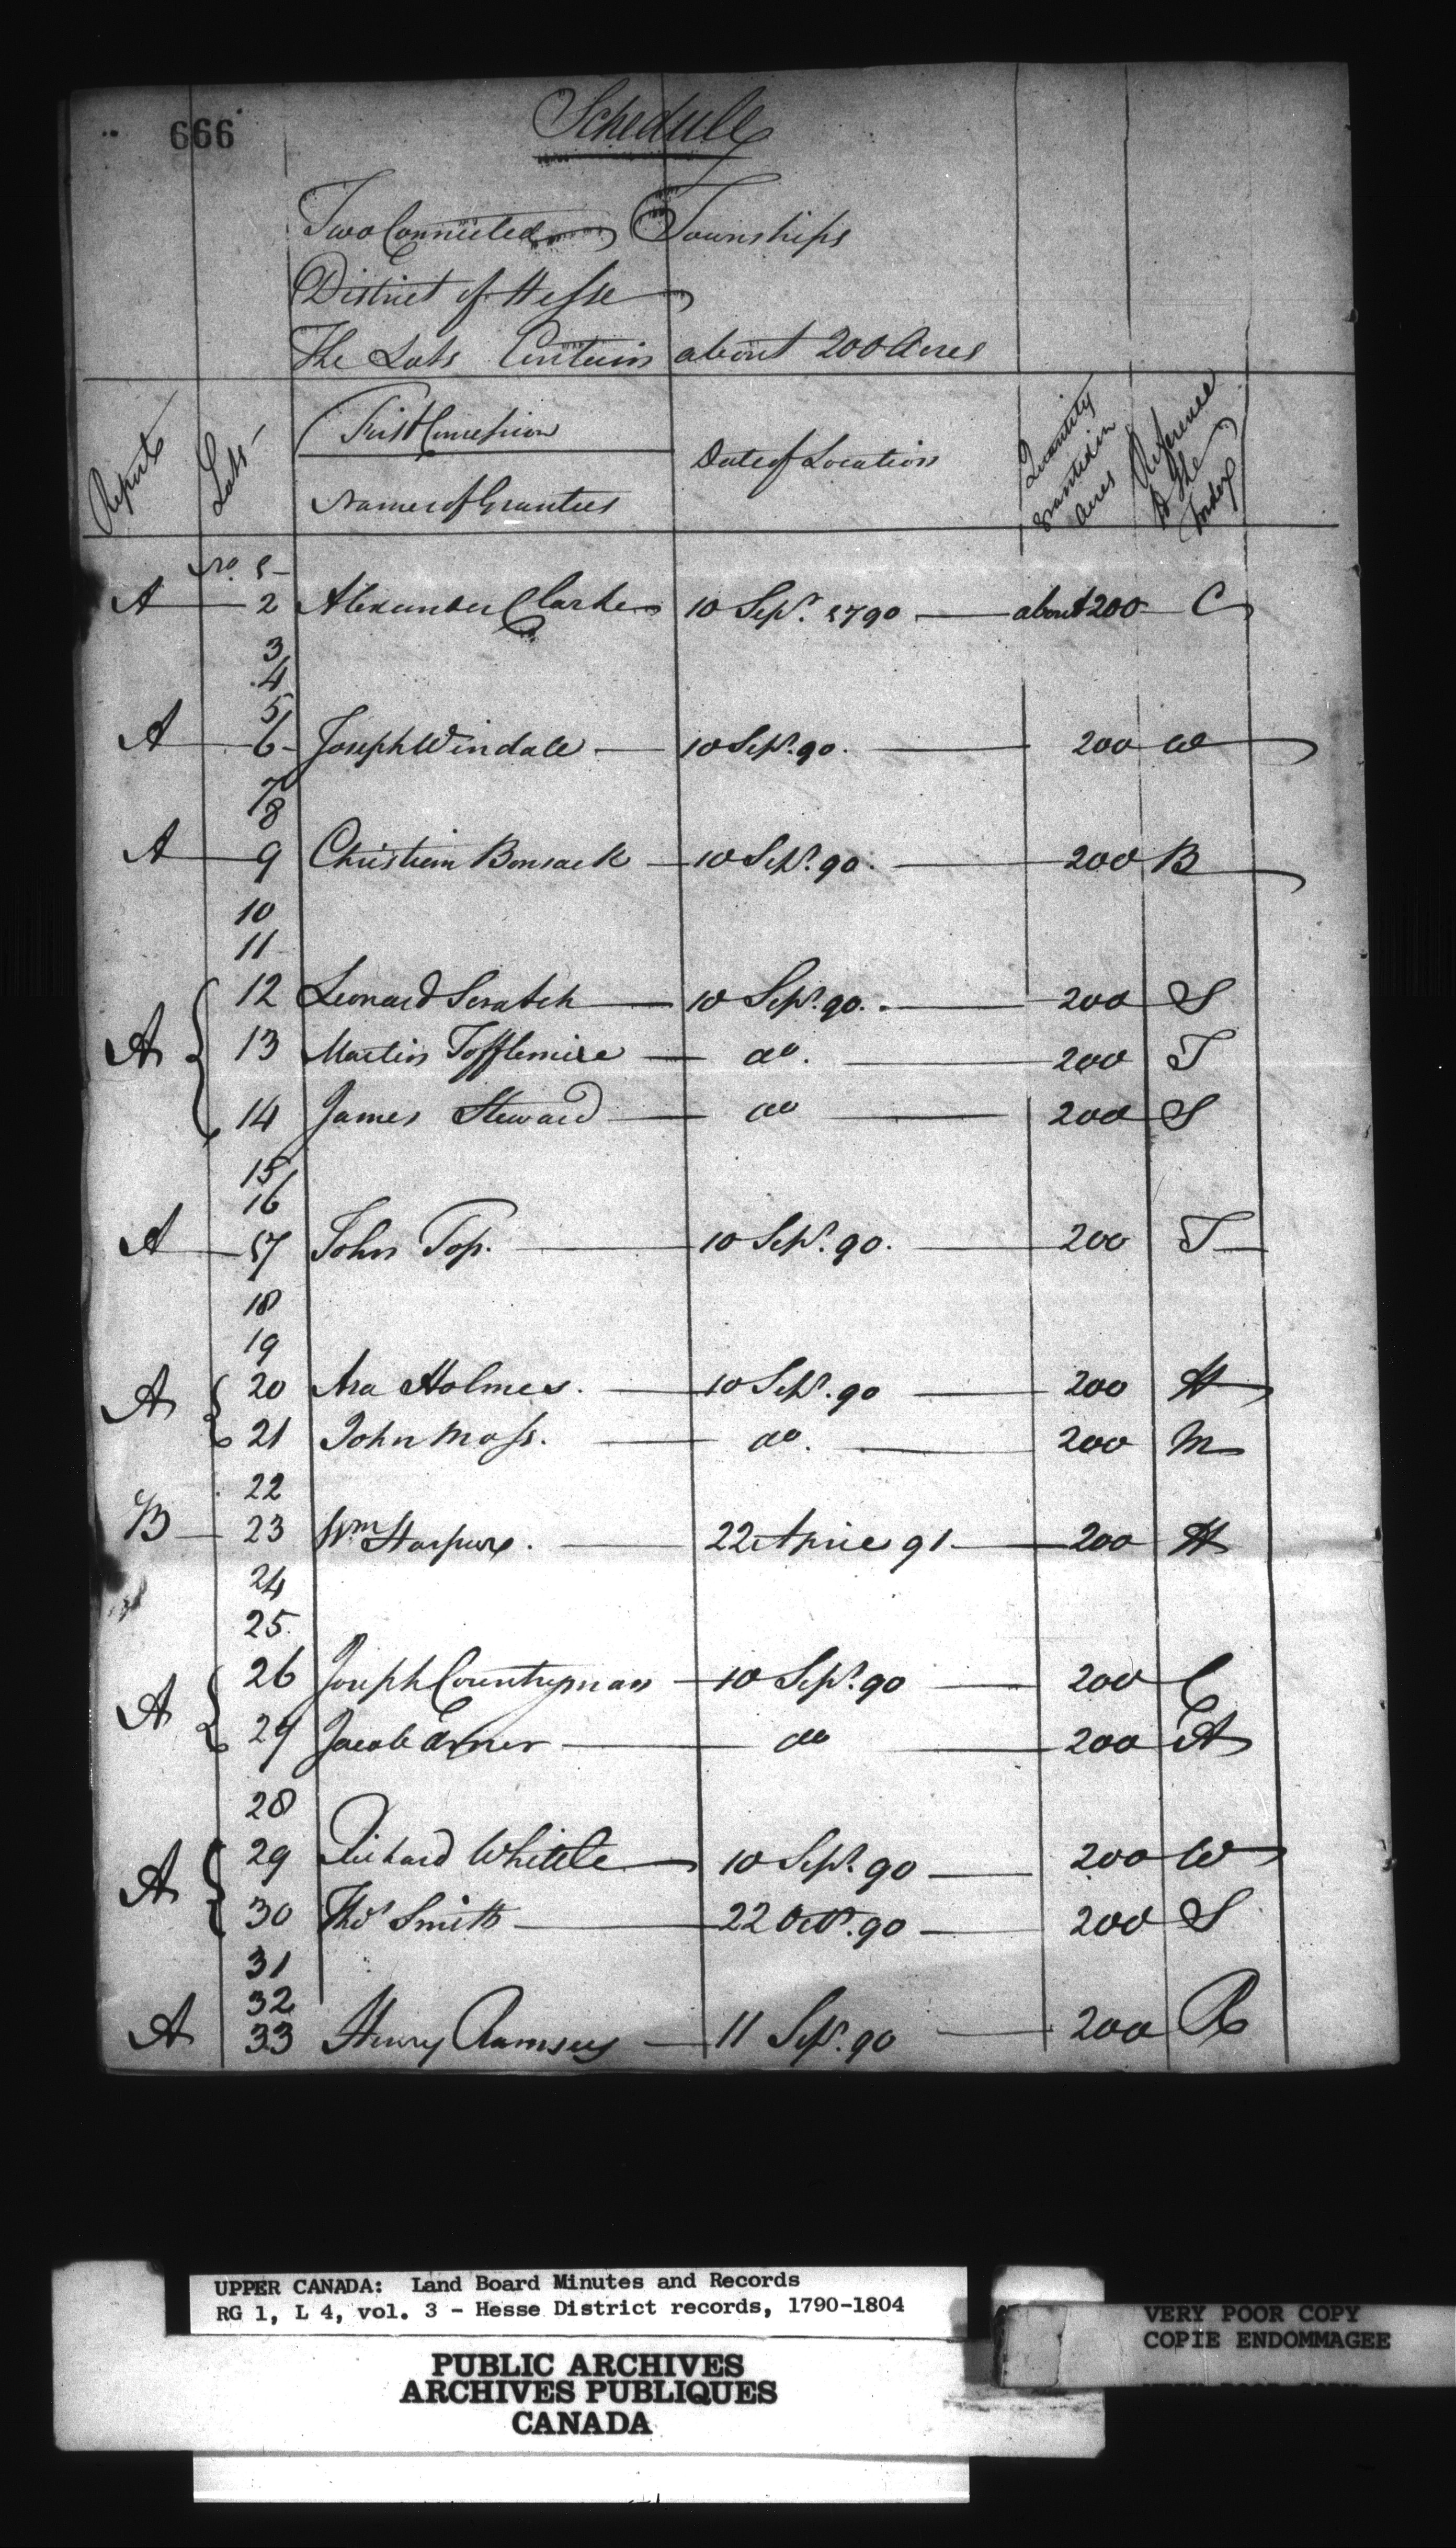 666
Schedule
Two Connected Townships
District of Hesse
The Lots Contain about 200 Acres
Reports Lots First Concession Date of Location Quantity granted in acres Reference to the Index
Names of Grantees
No. 1
A 2 Alexander Clarke 10 Sepr. 1790 about 200 C
3
4
5
A 6 Joseph Windale 10 Sepr. 90. 200 W
7
8
A 9 Christian Bonsack 10 Sepr. 90. 200 B
10
11
12 Leonard Scratch 10 Sepr. 90. 200 S
A 13 Martin Tofflemire do. 200 T
14 James Steward do 200 S
15
16
A 17 John Top. 10 Sepr. 90. 200 T
18
19
A 20 Asa Holmes. 10 Sepr. 90 200 H
21 John Moss. do. 200 M
22
B 23 Wm. 22 April 91 200 H
24
25.
A 26 Joseph Countryman 10 Sepr. 90 200 C
27 Jacob Arner do 200 A
28
A 29 Richard Whittle 10 Sepr. 90 200 W
30 Thos Smith 22 Octr. 90 200 S
31
32
A 33 Henry Ramsey 11 Sepr. 90 200 R
UPPER CANADA: Land Board Minutes and Records
RG 1, L 4, vol. 3 - Hesse District records, 1790-1804
PUBLIC ARCHIVES
ARCHIVES PUBLIQUES
CANADA
VERY POOR COPY
COPIE ENDOMMAGEE